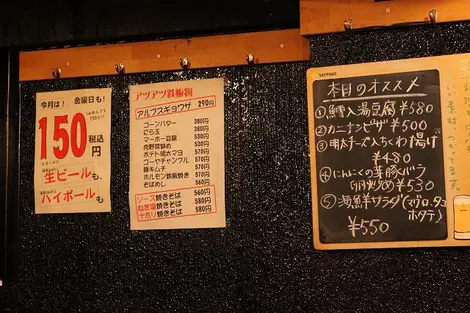 今月は! 金曜日も!
150
税込
円
生ビールも
ハイボールも
アツアツ鉄板物
アルプスギョウザ 290円
コーンバター 380円
にら玉 380円
マーボー豆腐
肉野菜炒め
ポテト明太マヨ
ゴーヤチャンプル
豚キムチ
ホルモン鉄板焼き 570円
そばめし 560円
ソース焼きそば 560円
ねぎ塩焼きそば 580円
ナポリ焼きそば 580円
SAPPORO
本日のオススメ
①鱈入湯豆腐 ¥580
②カニナンピザ ¥500
③明太チーズ入ちくわ揚げ
¥480
④にんにくの芽豚バラ
卵炒め ¥530
⑤海鮮サラダ(マグロ、タコ
ホタテ)
¥550